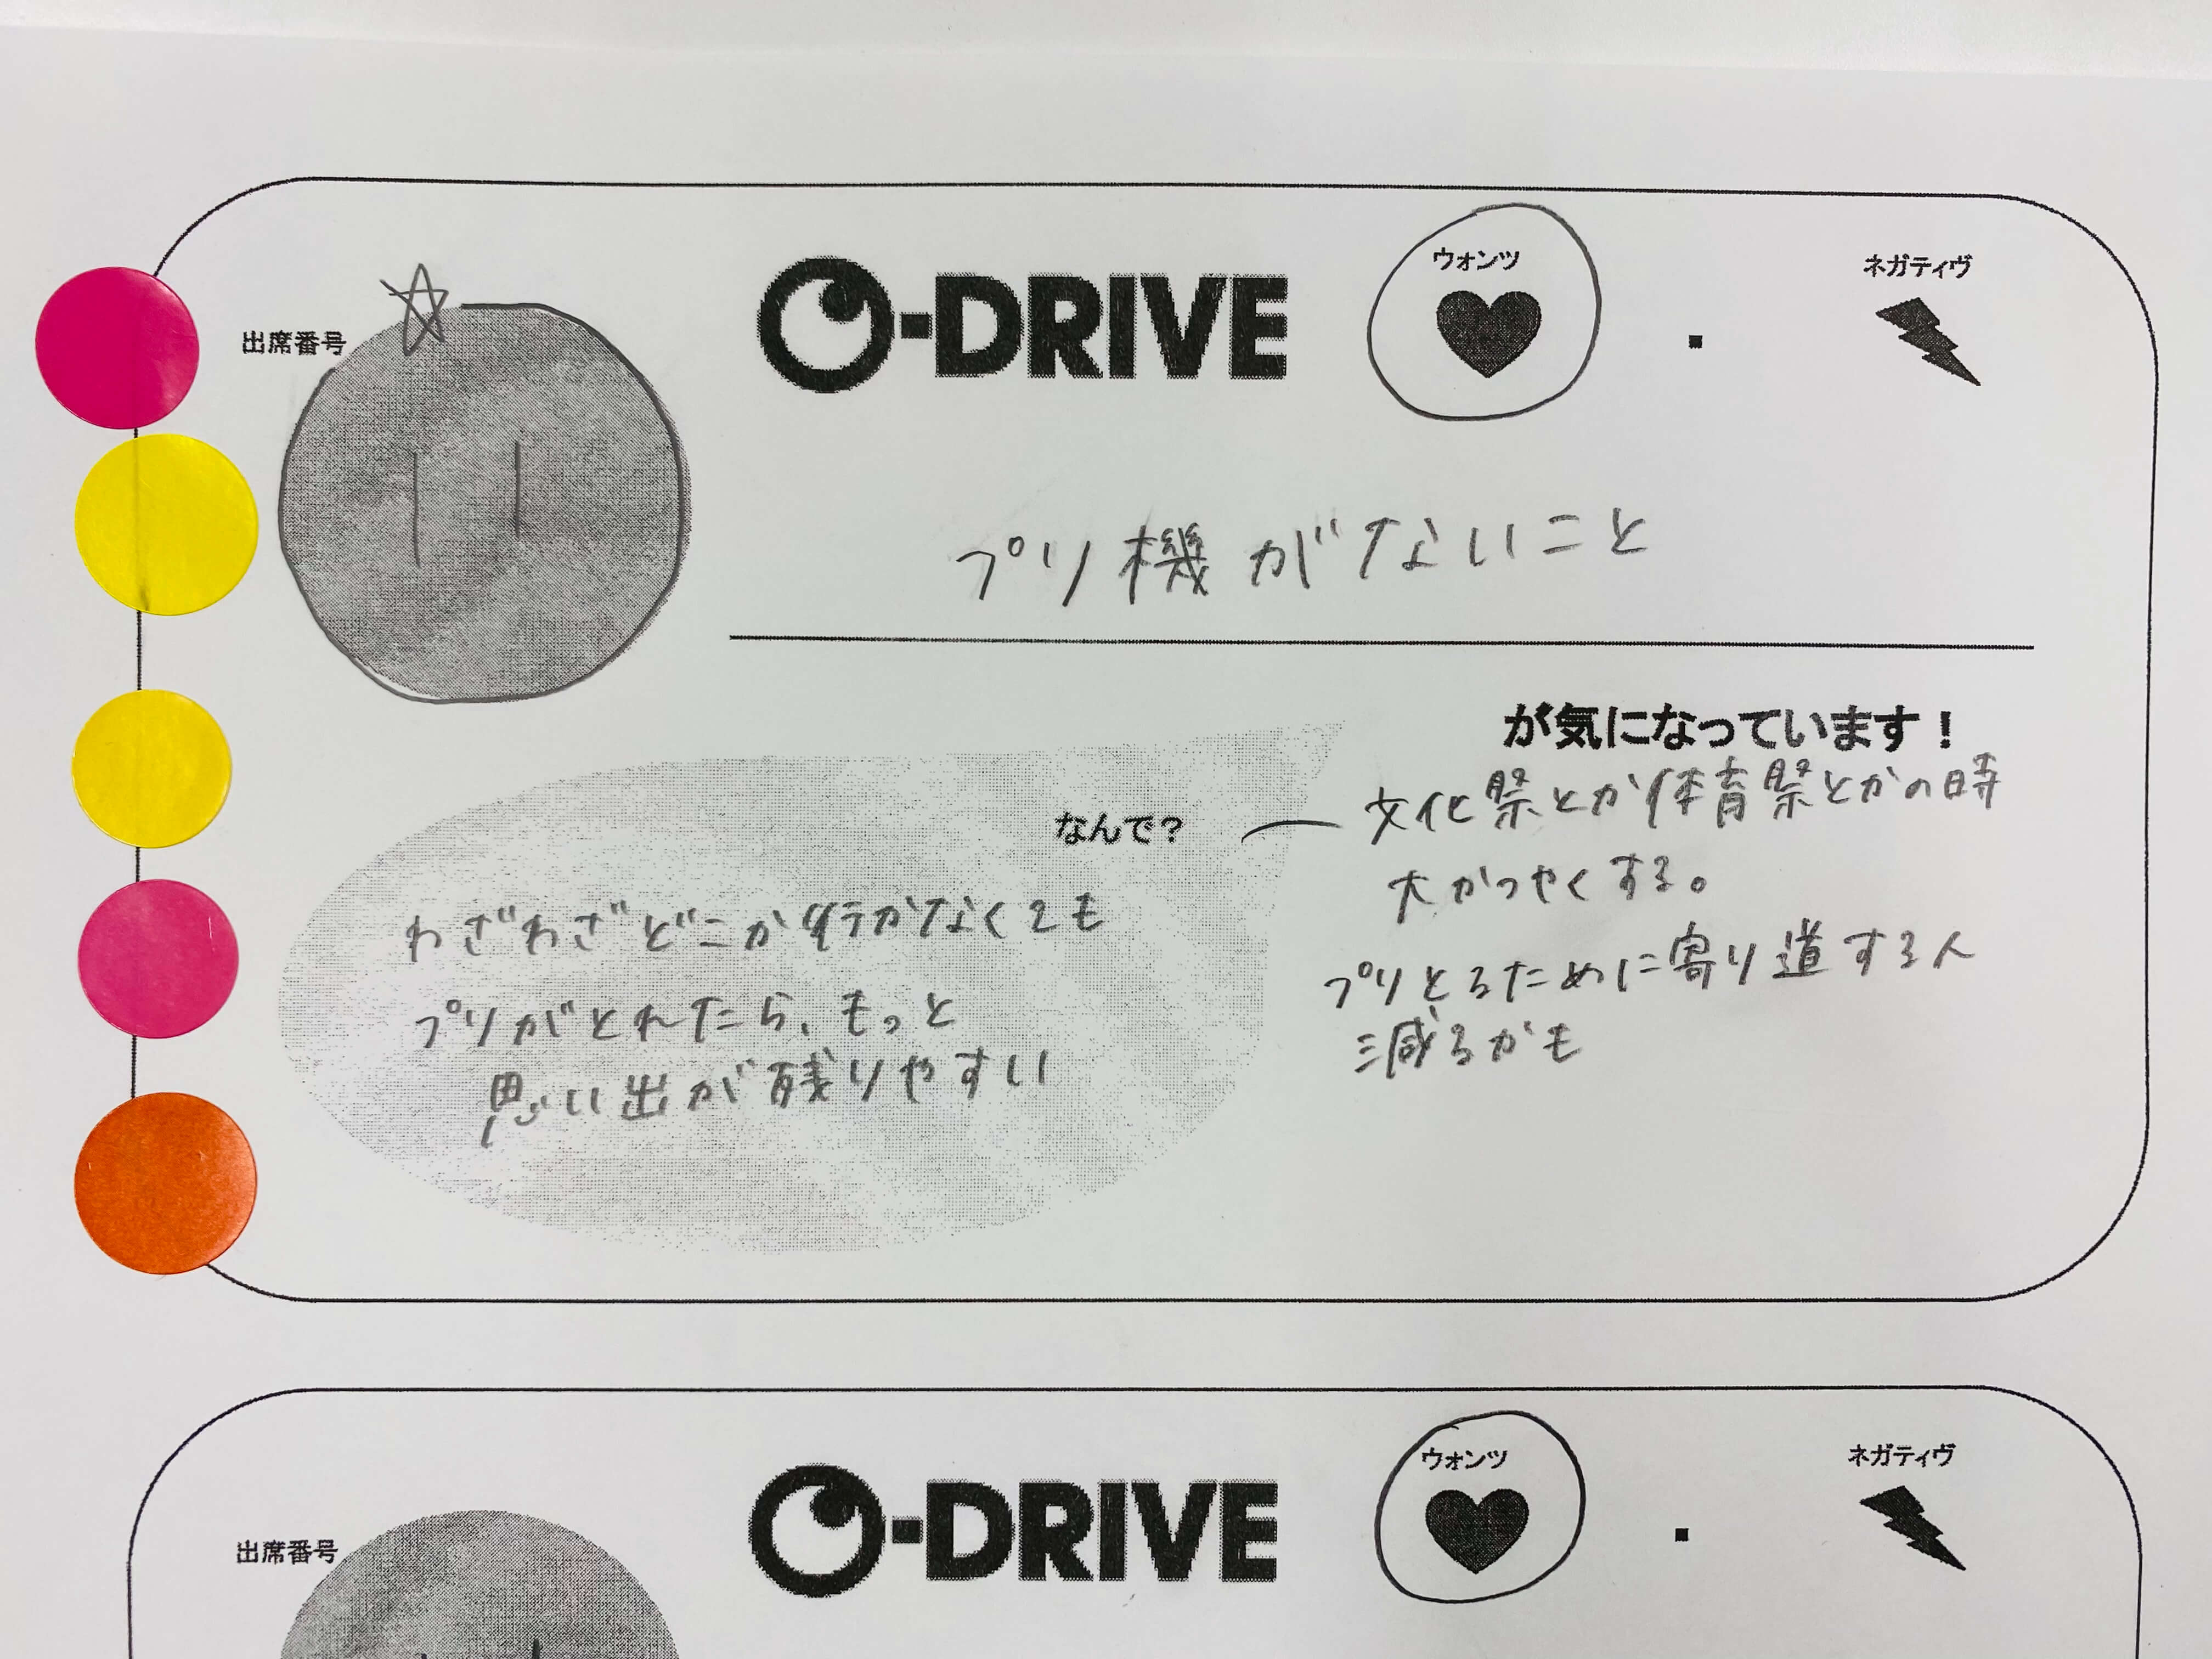 出席番号
11
O-DRIVE
ウォンツ
・
ネガティヴ
プリ機がないこと
が気になっています！
なんで？
わざわざどこか行かなくても
プリがとれたら、もっと
思い出が残りやすい
文化祭とか体育祭とかの時
大かつやくする。
プリとるために寄り道する人
減るかも
出席番号
O-DRIVE
ウォンツ
・
ネガティヴ